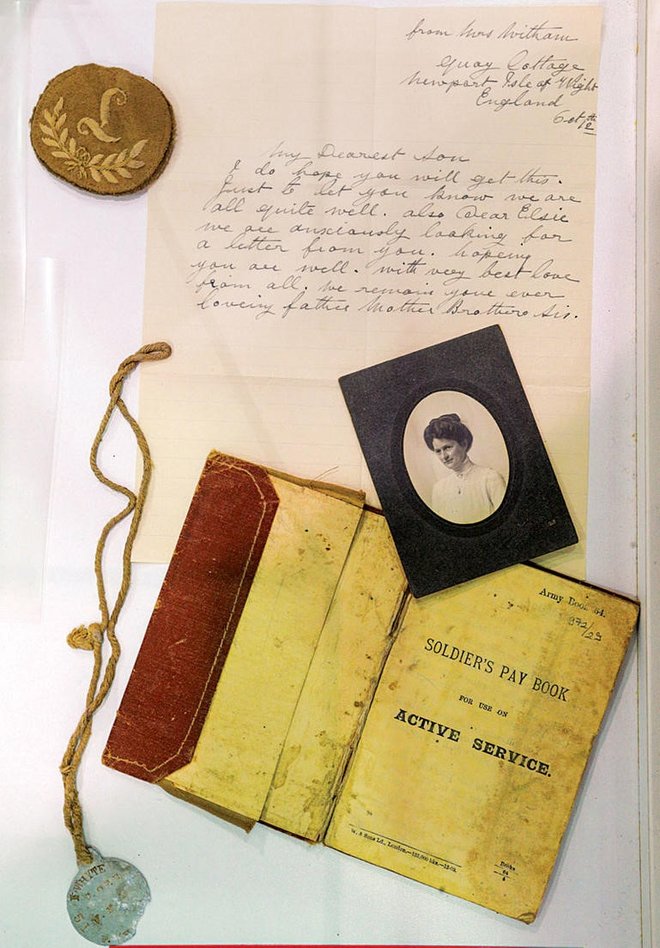 L
from Mrs Witham
Quay Cottage
Newport Isle of Wight
England
Oct
My Dearest Son
I do hope you will get this.
Just to let you know we are
all quite well. also Dear Elsie
we are anxiously looking for
a letter from you. hopeing
you are well. with very best love
from all. we remain your ever
loveing father Mother Brothers Sis.
Army Book 64.
SOLDIER'S PAY BOOK
FOR USE ON
ACTIVE SERVICE.
Sons Ld., London.
WHYTE